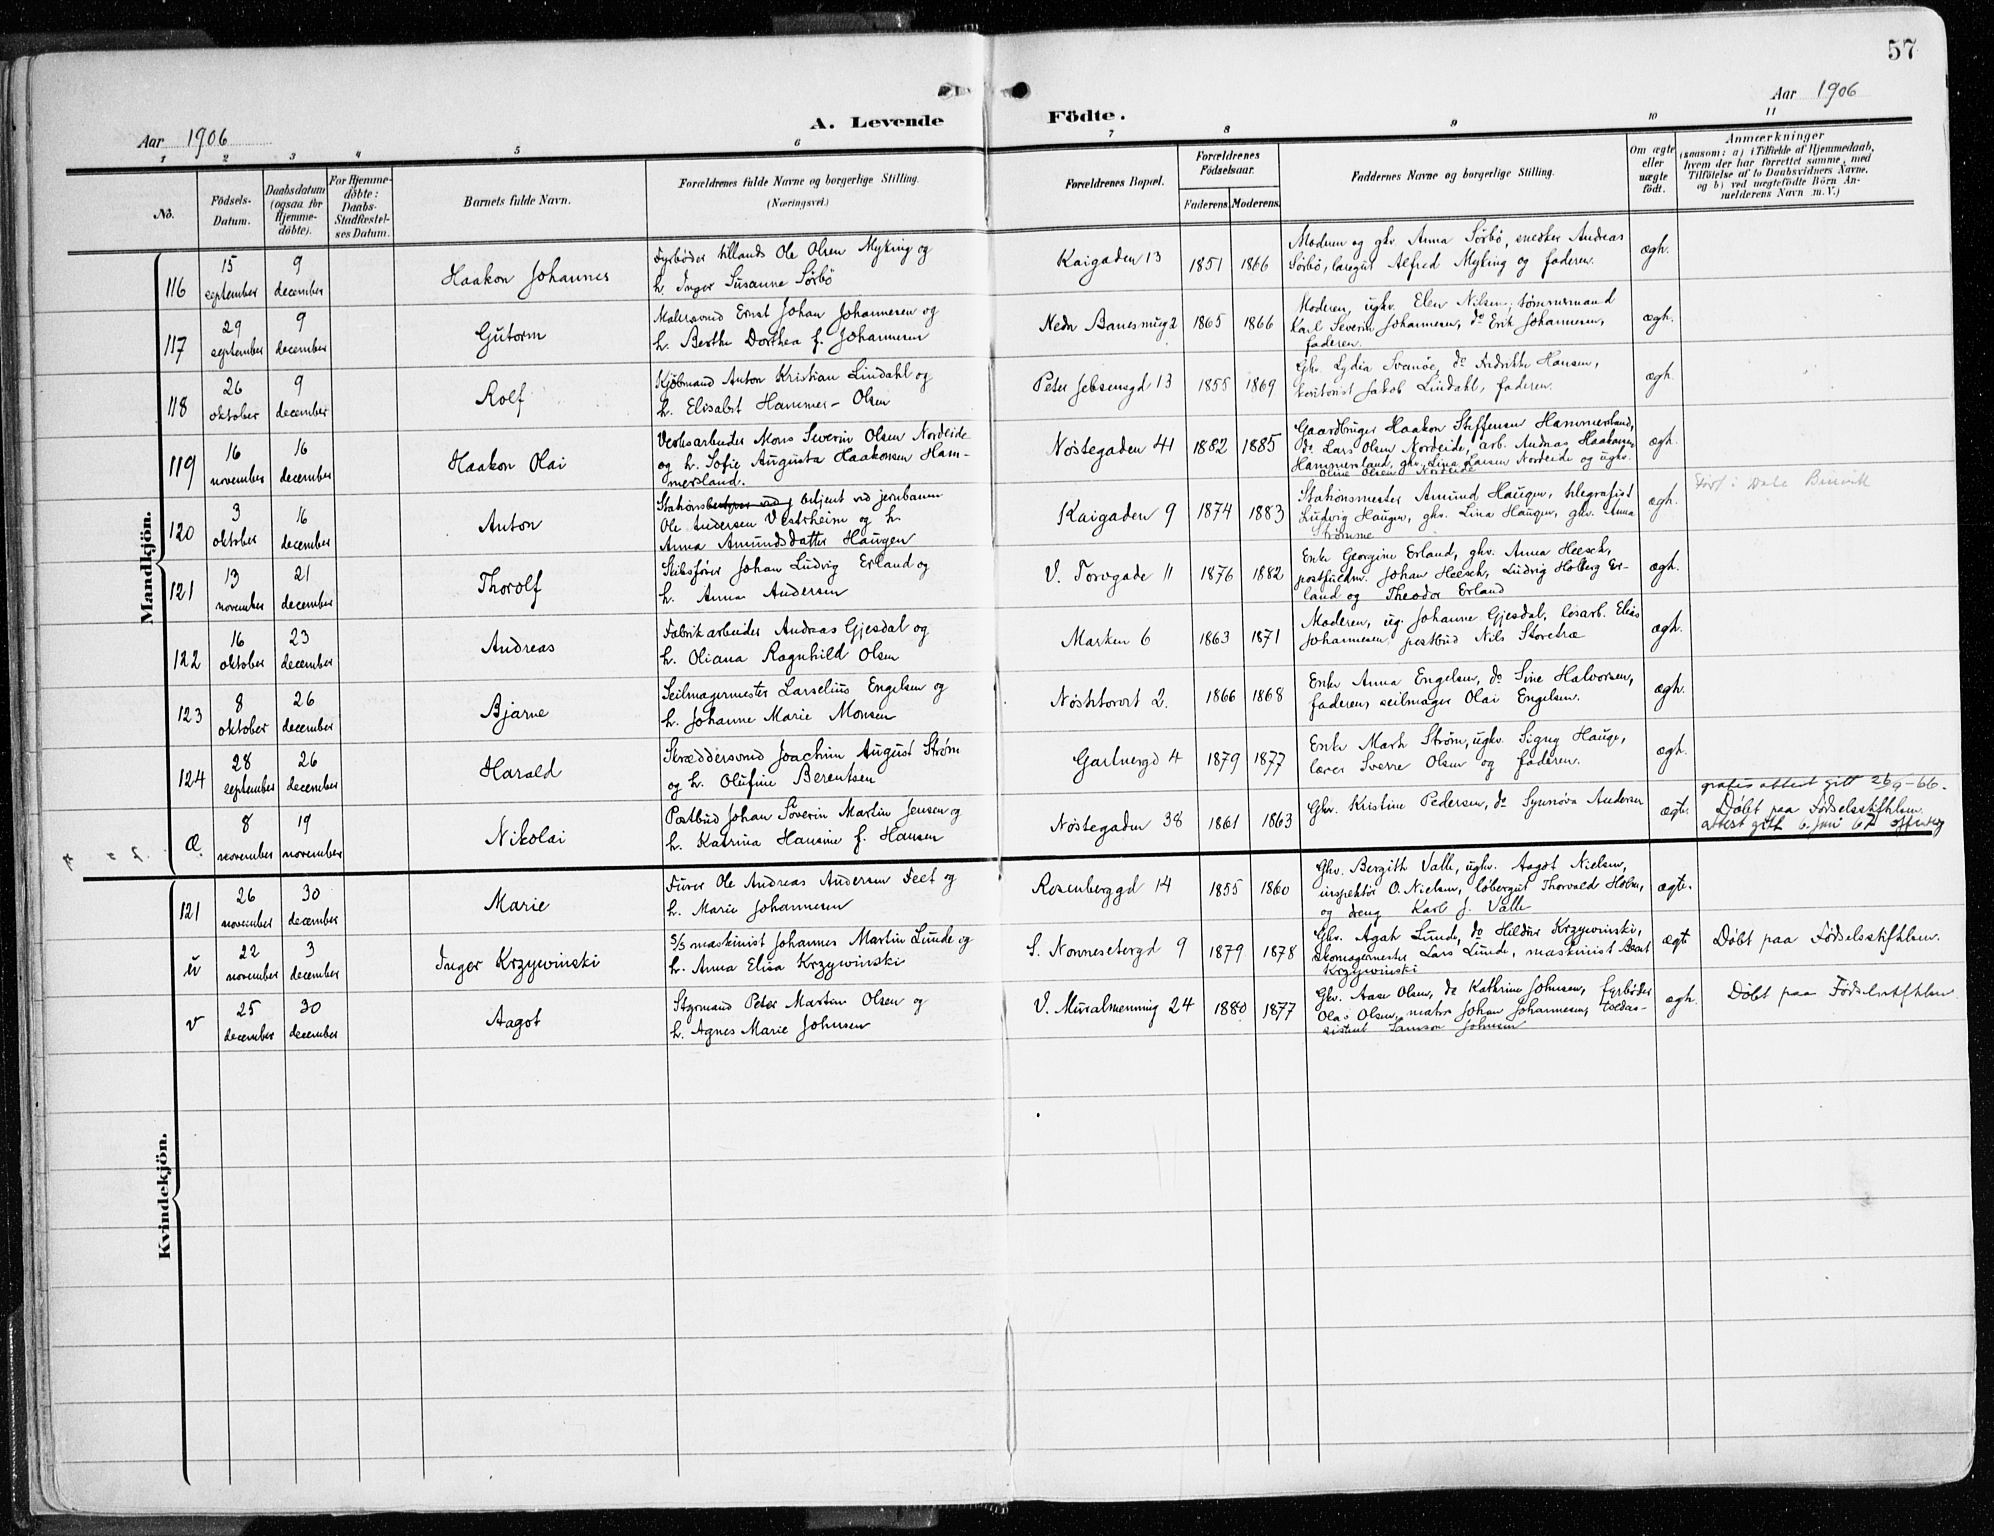 57
Aar 1906
A. Levende Födte.
Aar 1906
1 2 3 4 5 6 7 8 9 10 11
No.
Födsels-Datum.
Daabsdatum (ogsaa for Hjemme-döbte).
For Hjemme-döbte: Daabs-Stadfæstel-ses Datum.
Barnets fulde Navn.
Forældrenes fulde Navne og borgerlige Stilling.
(Næringsvei.)
Forældrenes Bopæl.
Forældrenes Födselsaar.
Faderens. Moderens.
Faddernes Navne og borgerlige Stilling.
Om ægte eller uægte födt.
Anmærkninger
(saasom: a) i Tilfælde af Hjemmedaab,
hvem der har forrettet samme, med
Tilföielse af to Daabsvidners Navne,
og b) ved uægtefödte Börn An-
melderens Navn m. V.)
Mandkjön.
116 15 september 9 december Haakon Johannes
Fyrbøder tillands Ole Olsen Myking og
h. Inger Susanne Sørbö
Kaigaden 13 1851 1866
Moderen og ghv. Anna Sørbö, snedker Andreas
Sørbö, læregut Alfred Myking og faderen.
ægh.
117 29 september 9 december Gutorm
Malersvend Ernst Johan Johannesen og
h. Berthe Dorthea f. Johannesen
Nedr Banesmug 2 1865 1866
Moderen, ughv. Elen Nilsen, tømmermand
Karl Severin Johannesen, do Erik Johannesen,
faderen.
ægh.
118 26 oktober 9 december Rolf
Kjøbmand Anton Kristian Lindahl og
h. Elisabet Hammer-Olsen
Peter Jebsensgd 13 1855 1869
Ghv. Lydia Svanöe, do Fredrikke Hansen,
kontorist Jakob Lindahl, faderen.
ægh.
119 16 november 16 december Haakon Olai
Verksarbeider Mons Severin Olsen Nordeide
og h. Sofie Augusta Haakonsen Ham-
mersland.
Nøstegaden 41 1882 1885
Gaardbruger Haakon Steffensen Hammersland,
do Lars Olsen Nordeide, arb. Andreas Haakonsen
Hammersland, ghv. Lina Larsen Nordeide og ughv.
Oline Olsen Nordeide
ægh.
120 3 oktober 16 december Anton
Stationsbetjent ved jernbanen
Ole Andersen Vestrheim og h.
Anna Amundsdatter Haugen
Kaigaden 9 1874 1883
Stationsmester Amund Haugen, telegrafist
Ludvig Haugen, ghv. Lina Haugen, ghv. Anna
Tromme
ægh.
Født i Dale
121 13 november 21 december Thorolf
Skibsfører Johan Ludvig Erland og
h. Anna Andersen
V. Torvgade 11 1876 1882
Enke Georgine Erland, ghv. Anna Heesch,
Johan Heesch, Ludvig Holberg Er-
land og Theodor Erland
ægh.
122 16 oktober 23 december Andreas
Fabrikarbeider Andreas Gjesdal og
h. Oliana Ragnhild Olsen
Marken 6 1863 1871
Moderen, ug. Johanne Gjesdal, løsarb. Elias
Johannesen, postbud Nils Storetræ
ægh.
123 8 oktober 26 december Bjarne
Seilmagermester Larselius Engelsen og
h. Johanne Marie Monsen
Nøstetorvt 2. 1866 1868
Enke Anna Engelsen, do Sine Halvorsen,
faderen, seilmager Olai Engelsen.
ægh.
124 28 september 26 december Harald
Skræddersvend Joachim August Strøm
og h. Olufine Berentsen
Gartnergd 4 1879 1877
Enke Marth Strøm, ughv. Signy Hauge,
lærer Sverre Olsen og faderen.
ægh.
gratis attest gitt 26 9-66.
æ. 8 november 19 november Nikolai
Postbud Johan Söverin Martin Jensen og
h. Katrina Hansine f. Hansen
Nøstegaden 38 1861 1863
Ghv. Kristine Pedersen, do Synnöva Andersen
ægte.
Døbt paa Fødselsstiftelsen.
Attest gitt 6. juni 67
Kvindekjön.
121 26 november 30 december Marie
Fører Ole Andreas Andersen Feet og
h. Marie Johannesen
Rosenberggd 14 1855 1860
Ghv. Bergith Valle, ughv. Aagot Nielsen,
inspektör O. Nielsen, løbergut Thorvald Holm,
og dreng Karl J. Valle
ægte.
ü 22 november 3 december Inger Krzywinski
S/S maskinist Johannes Martin Lunde og
h. Anna Elisa Krzywinski
S. Nonnesetergd 9 1879 1878
Ghv. Agath Lunde, do Heldur Krzywinski,
skomagermester Lars Lunde, maskinist Beat
Krzywinski
ægte
Døbt paa Fødselsstiftelsen.
v 25 december 30 december Aagot
Styrmand Peter Martin Olsen og
h. Agnes Marie Johnsen
V. Muralmenning 24 1880 1877
Ghv. Aase Olsen, do Kathrine Johnsen, fyrbøder
Olas Olsen, matros Johan Johannesen, toldas-
sistent Samson Johnsen
ægh.
Døbt paa Fødselsstiftelsen